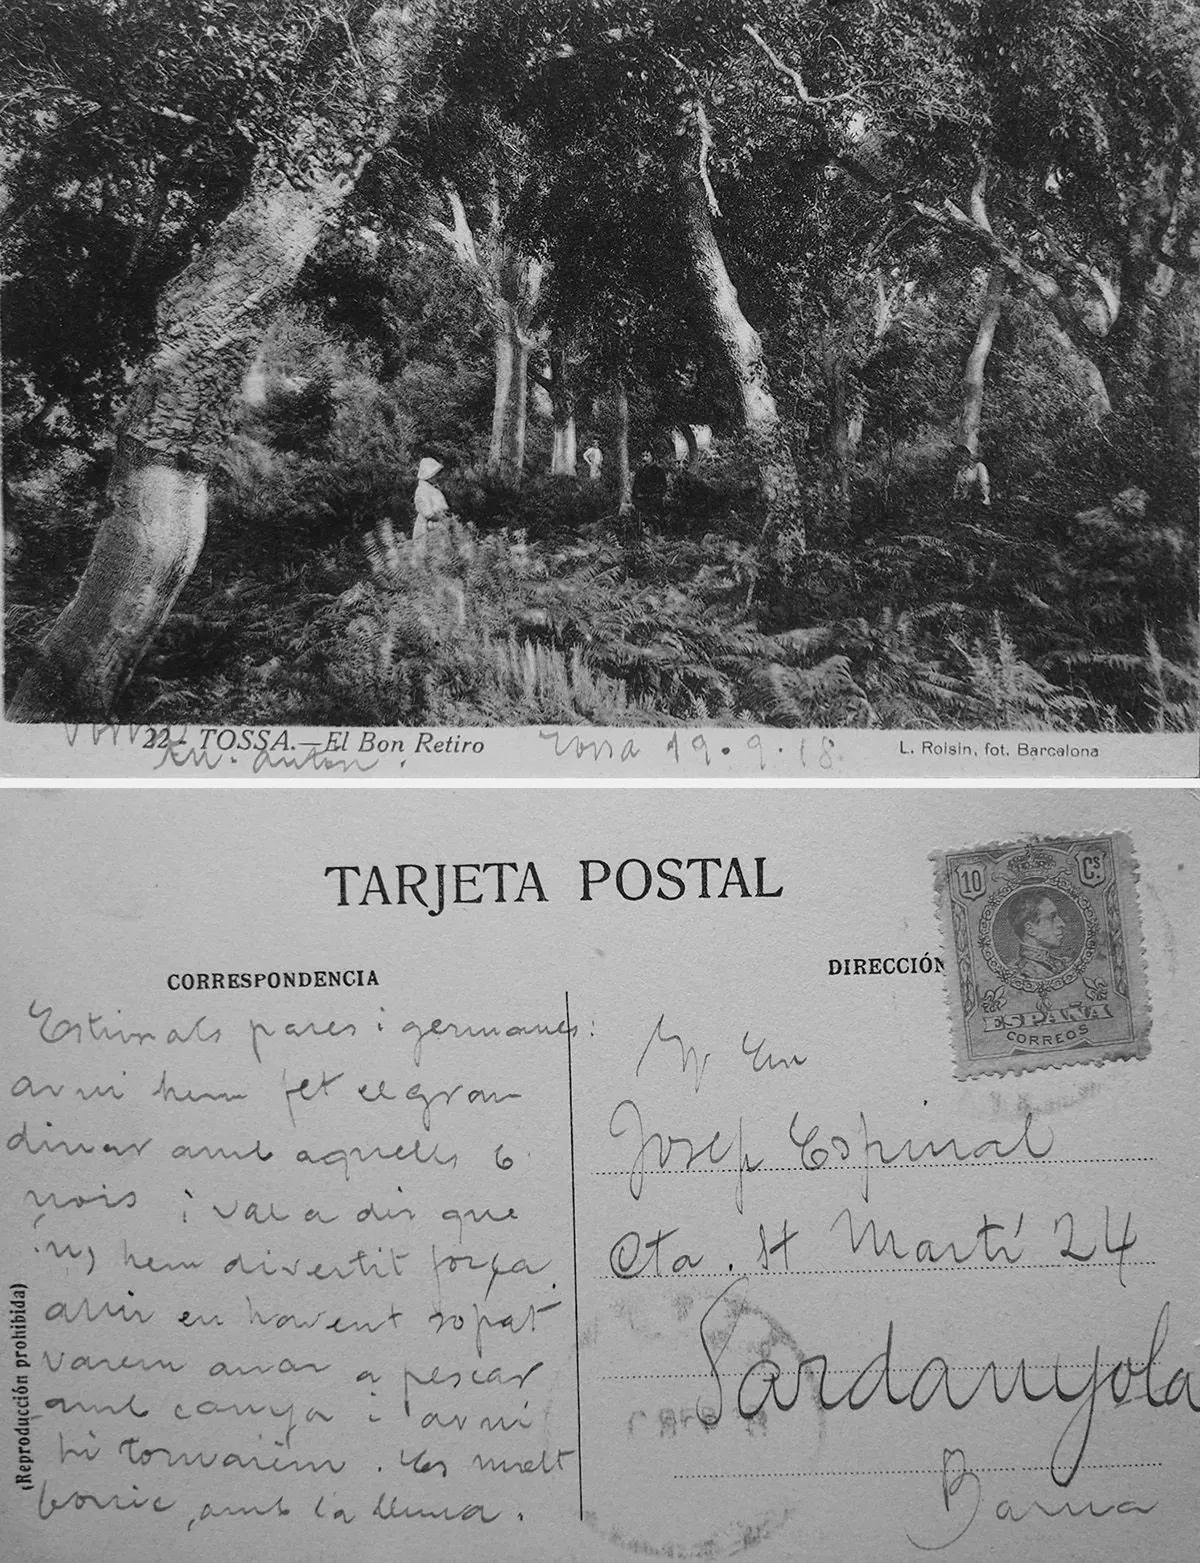 22.- TOSSA.—El Bon Retiro
Tossa 19.9.18.
L. Roisin, fot. Barcelona
TARJETA POSTAL
CORRESPONDENCIA
DIRECCIÓN
10 Cs.
ESPAÑA
CORREOS
Estimals pares i germanes:
avui hem fet el gran
dinar amb aquells 6
nois i val a dir que
ns hem divertit força.
ahir en havent sopat
varem anar a pescar
amb canya i avui
hi tornarem. Es molt
bonic, amb la lluna.
Josep Espinal
Cta. St Martí 24
Sardanyola
Barna
(Reproducción prohibida)